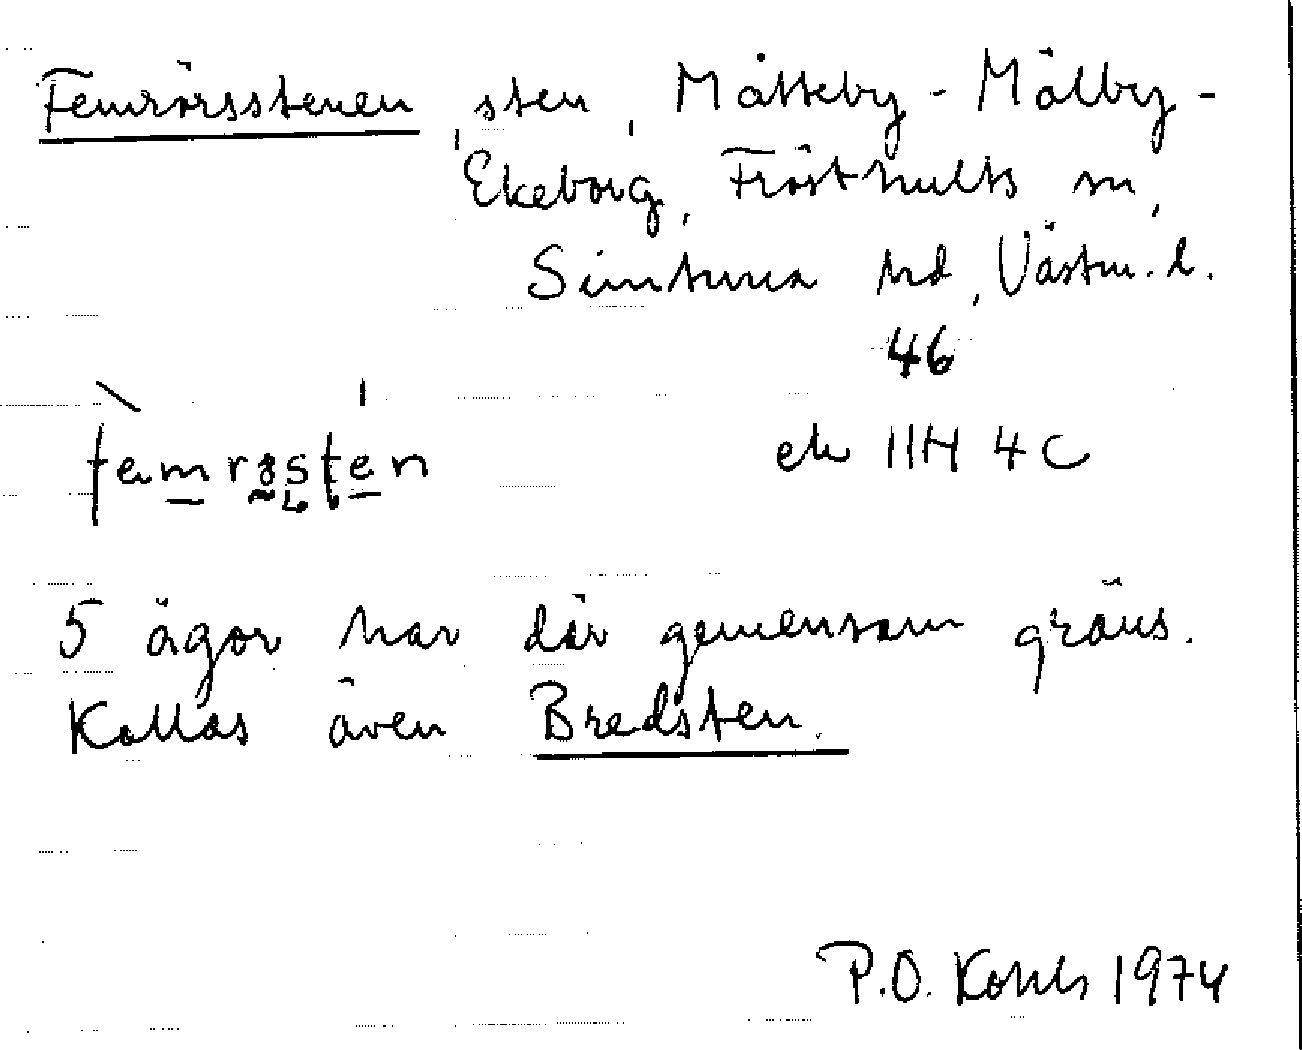 Femrörsstenen, sten, Måtteby - Mälby -
Ekeborg, Frösthults sn,
Simtuna hd, Västm. l.
46
ek 11H 4C
5 ägor har där gemensam gräns.
Kallas även Bredsten.
P.O. Kohls 1974